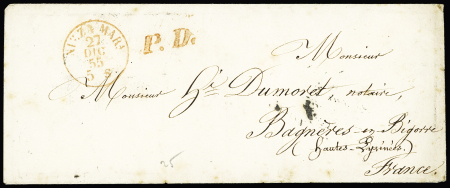 NIZZA MAR.
27
DIC
55
5 S.
P. D.
Monsieur
Monsieur Hi Dumoret, notaire,
Bagnères-en-Bigorre
(hautes-Pyrénées)
France.
25